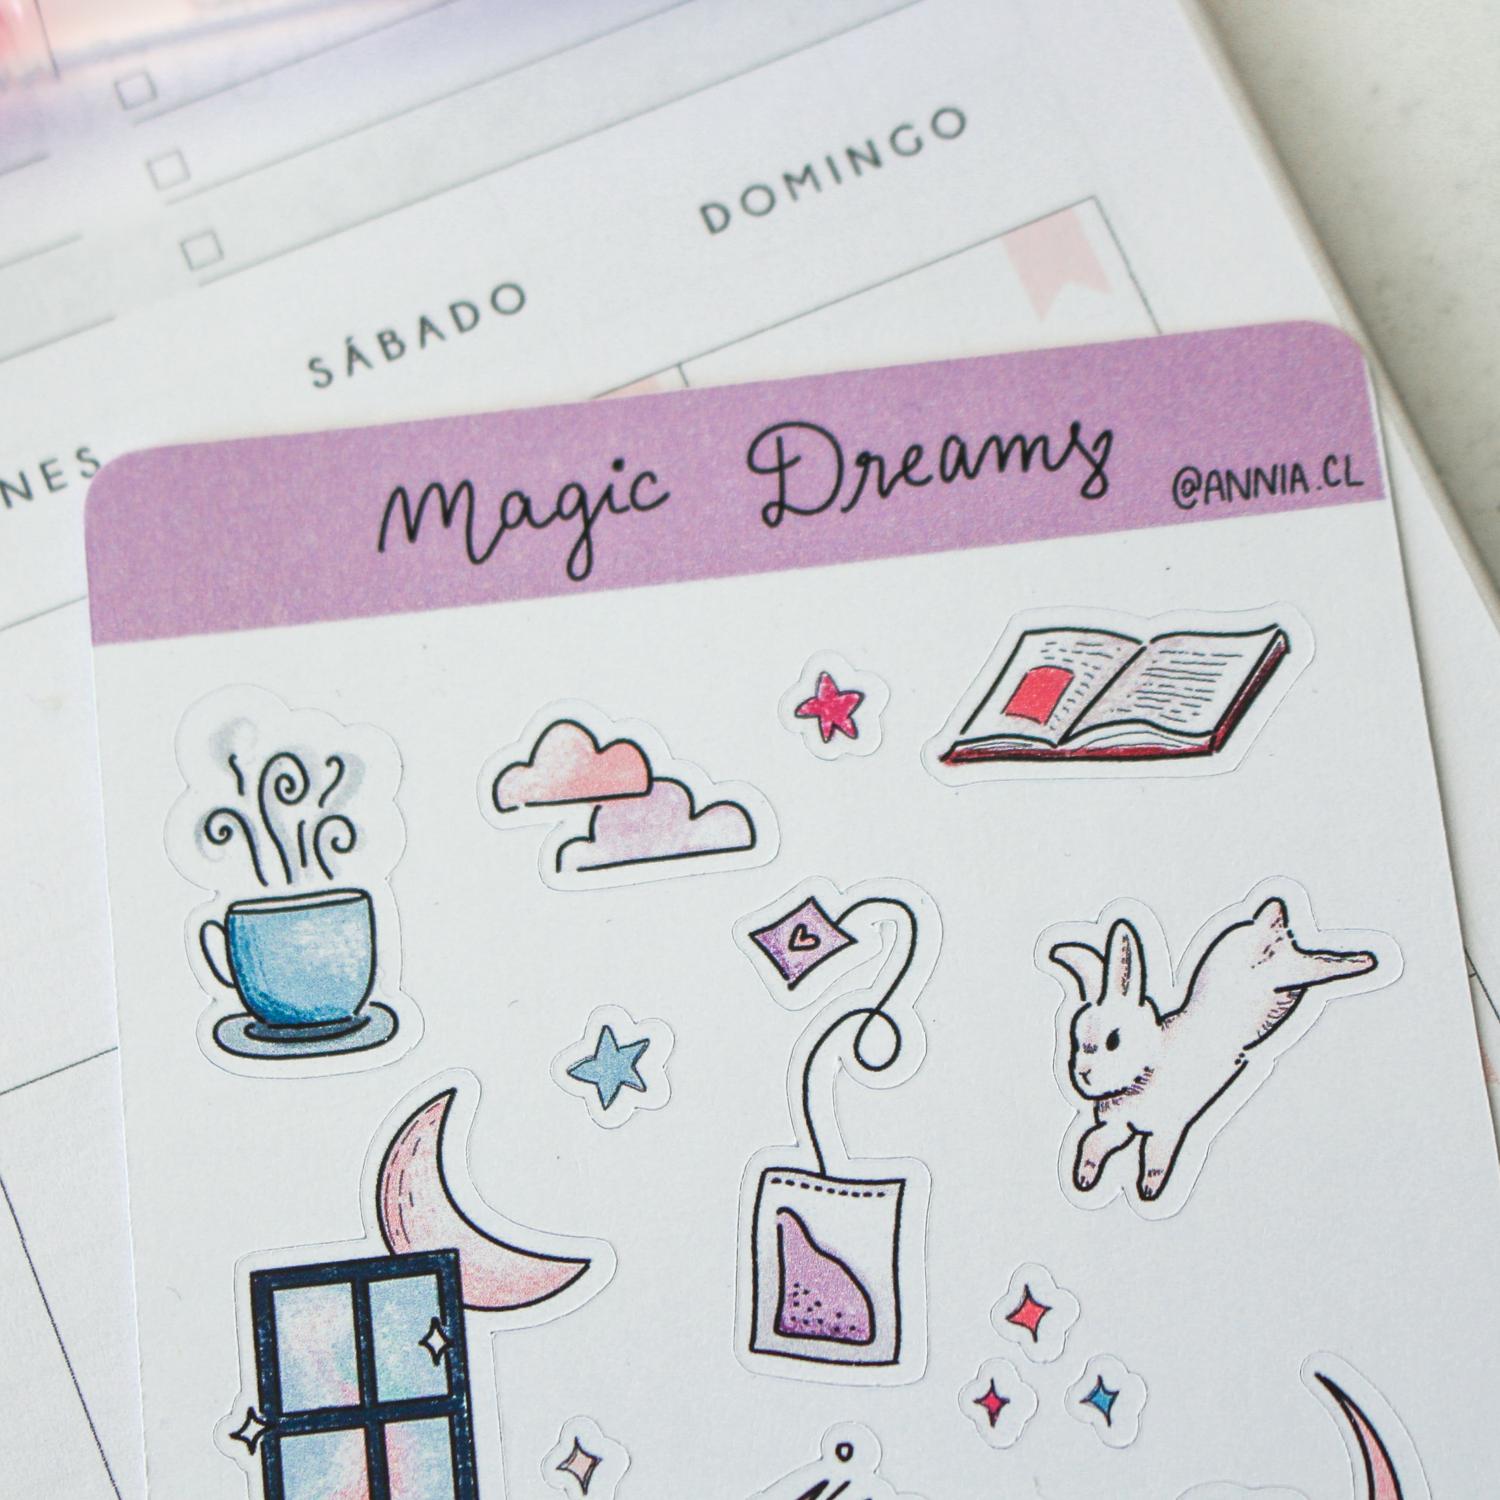 DOMINGO
SÁBADO
NES
Magic Dreams
@ANNIA.CL